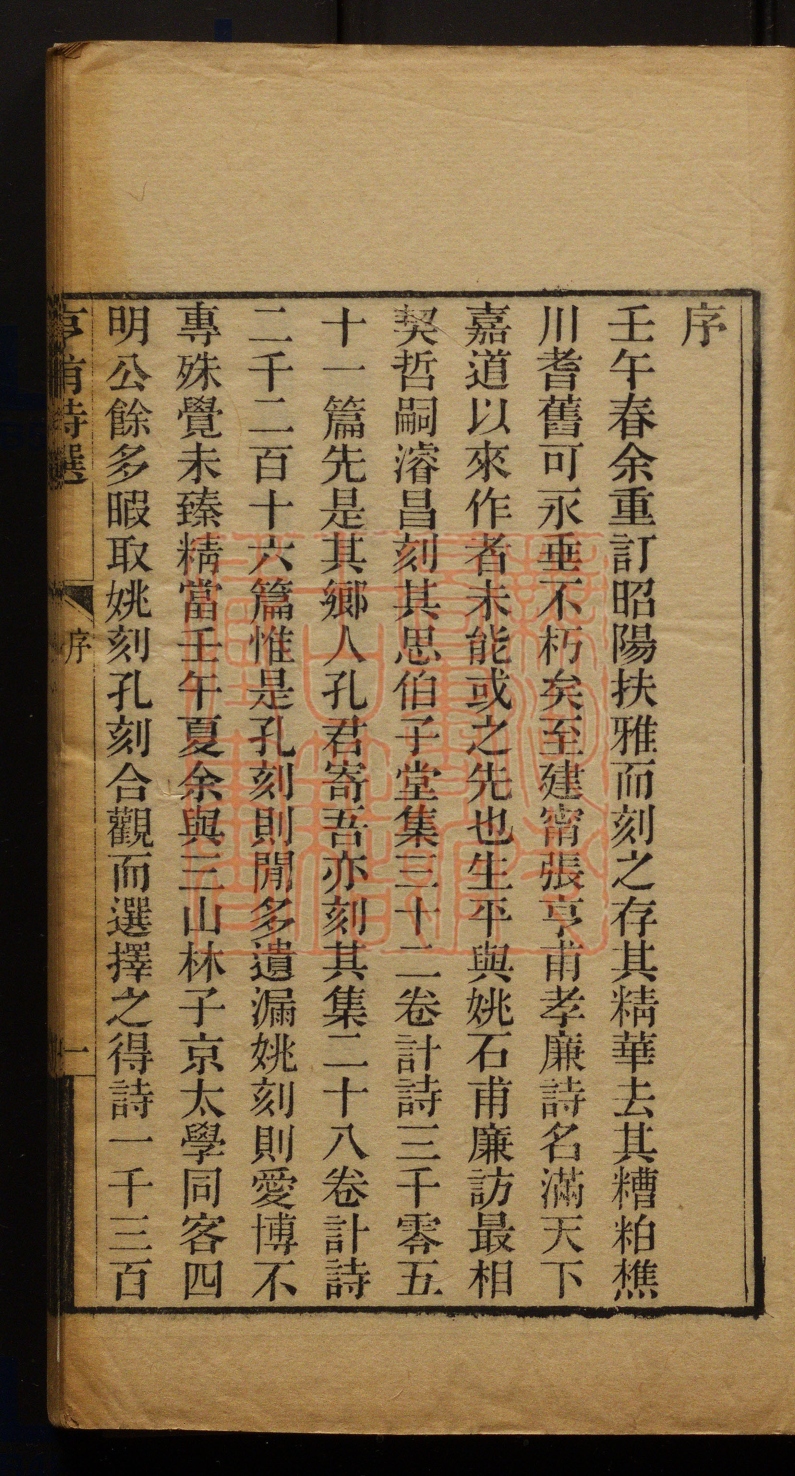 序
壬午春余重訂昭陽扶雅而刻之存其精華去其糟粕樵
川耆舊可永垂不朽矣至建甯張亨甫孝廉詩名滿天下
嘉道以來作者未能或之先也生平與姚石甫廉訪最相
契哲嗣濬昌刻其思伯子堂集三十二卷計詩三千零五
十一篇先是其鄉人孔君寄吾亦刻其集二十八卷計詩
二千二百十六篇惟是孔刻則閒多遺漏姚刻則愛博不
專殊覺未臻精當壬午夏余與三山林子京太學同客四
明公餘多暇取姚刻孔刻合觀而選擇之得詩一千三百
亨甫詩選
序
一